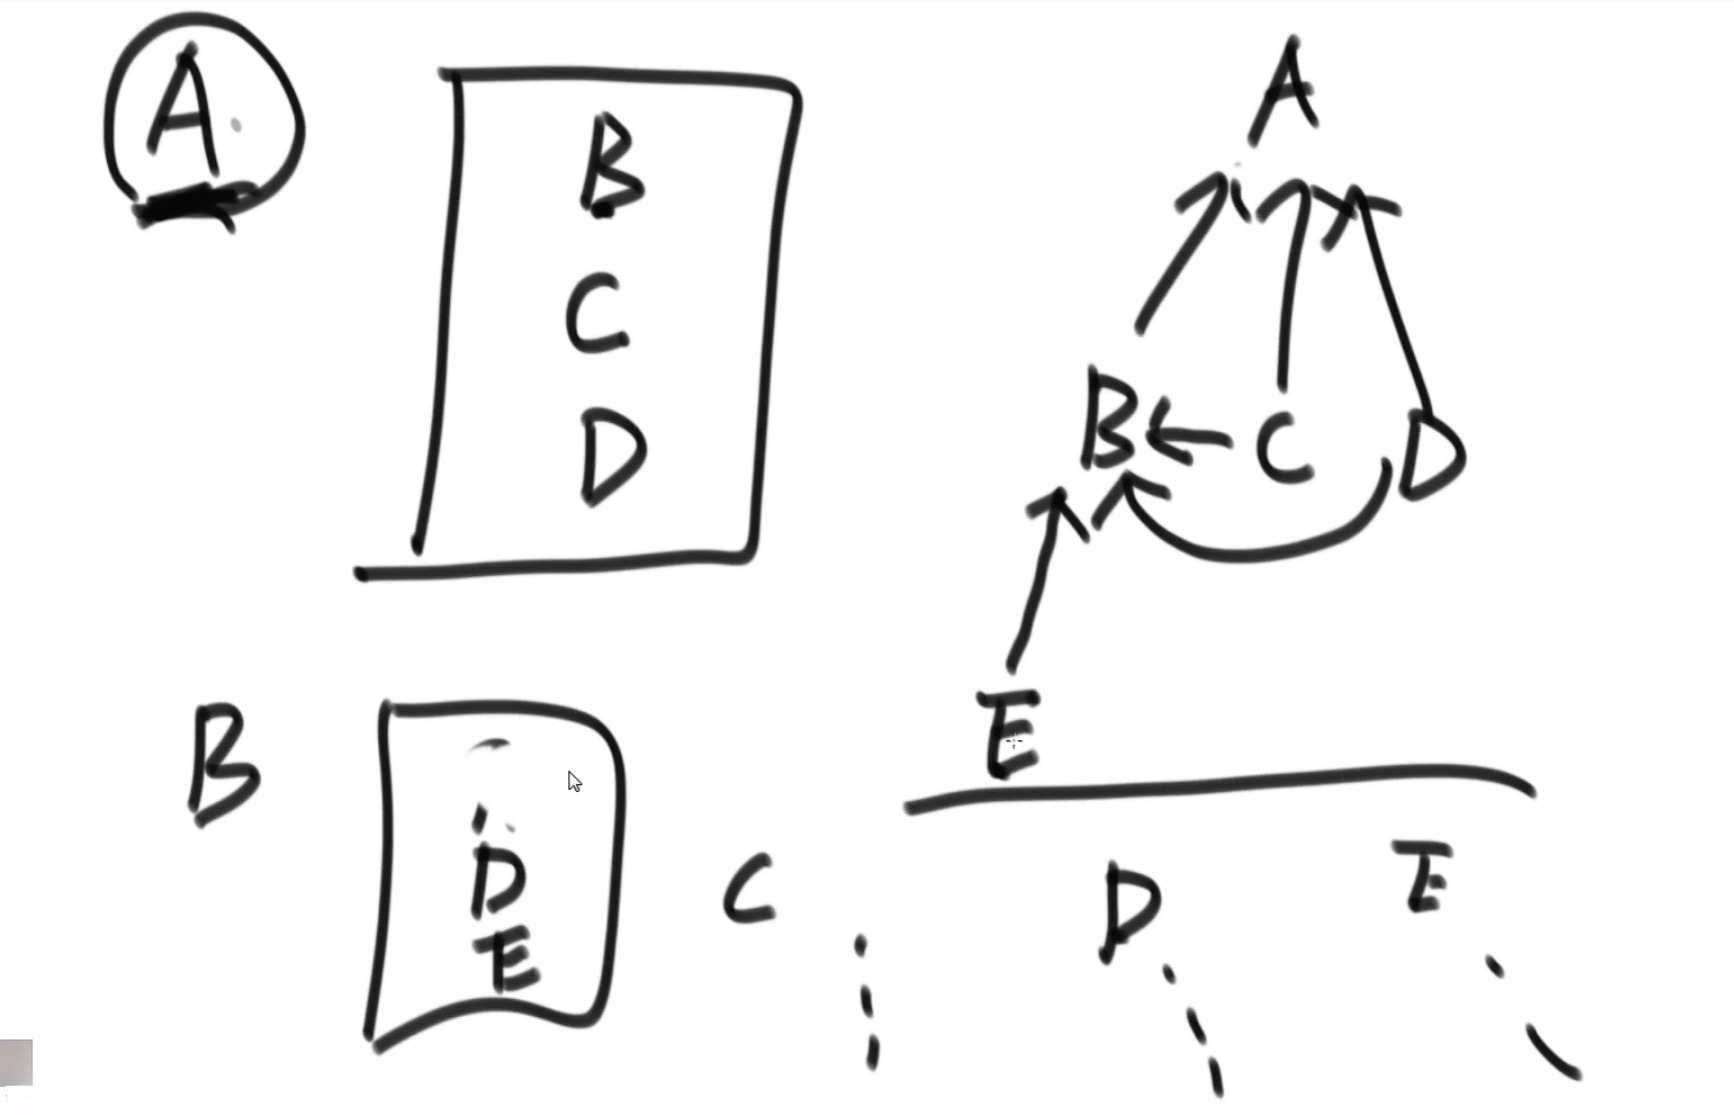 A
B
C
D
A
B
C
D
E
B
D
E
C
D
E